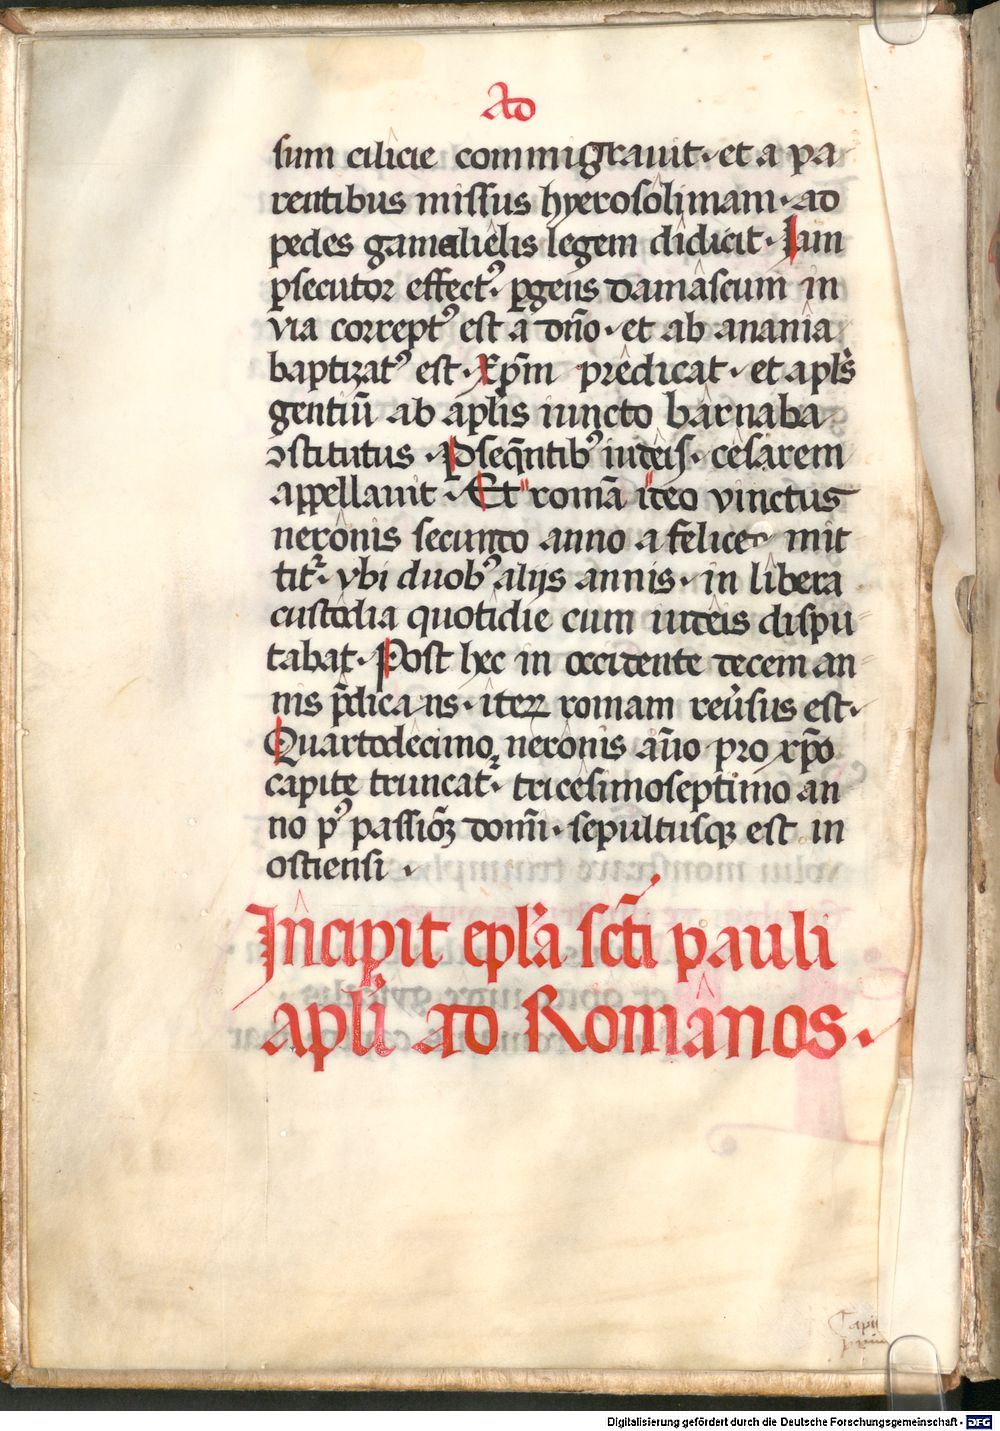 Ad
sum cilicie commigrauit · et a pa
rentibus missus hyerosolimam · ad
pedes gamalielis legem didicit · Jam
ꝑsecutor effectꝰ · ꝑgens damascum in
via correptꝰ est a dn̄o · et ab anania
baptizatꝰ est · Xp̄m predicat · et apl̄s
gentiū ab apl̄is iuncto barnaba
ꝯstitutus · Pseq̄ntibꝰ iudeis · cesarem
appellauit · Et romā ideo vinctus
neronis secundo anno a felice mit
titr̄ · vbi duobꝰ alijs annis · in libera
custodia quotidie cum iudeis dispu
tabat · Post hec in occidente decem an
nis p̄dicans · iteꝝ romam reu̓sus est ·
Quartodecimo neronis an̄o pro xp̄o
capite truncatr̄ · tricesimoseptimo an
no pꝰ passiōꝫ domī · sepultusqꝫ est in
ostiensi ·
Incipit epl̄a sc̄ti pauli
apl̄i ad Romanos ·
Digitalisierung gefördert durch die Deutsche Forschungsgemeinschaft - DFG